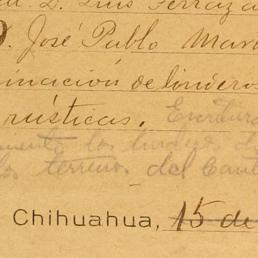 D. Luis Terraza
D. José Pablo Mar
inación de linderos
rústicas. Escritura
los
los terrenos del Cant
Chihuahua, 15 de